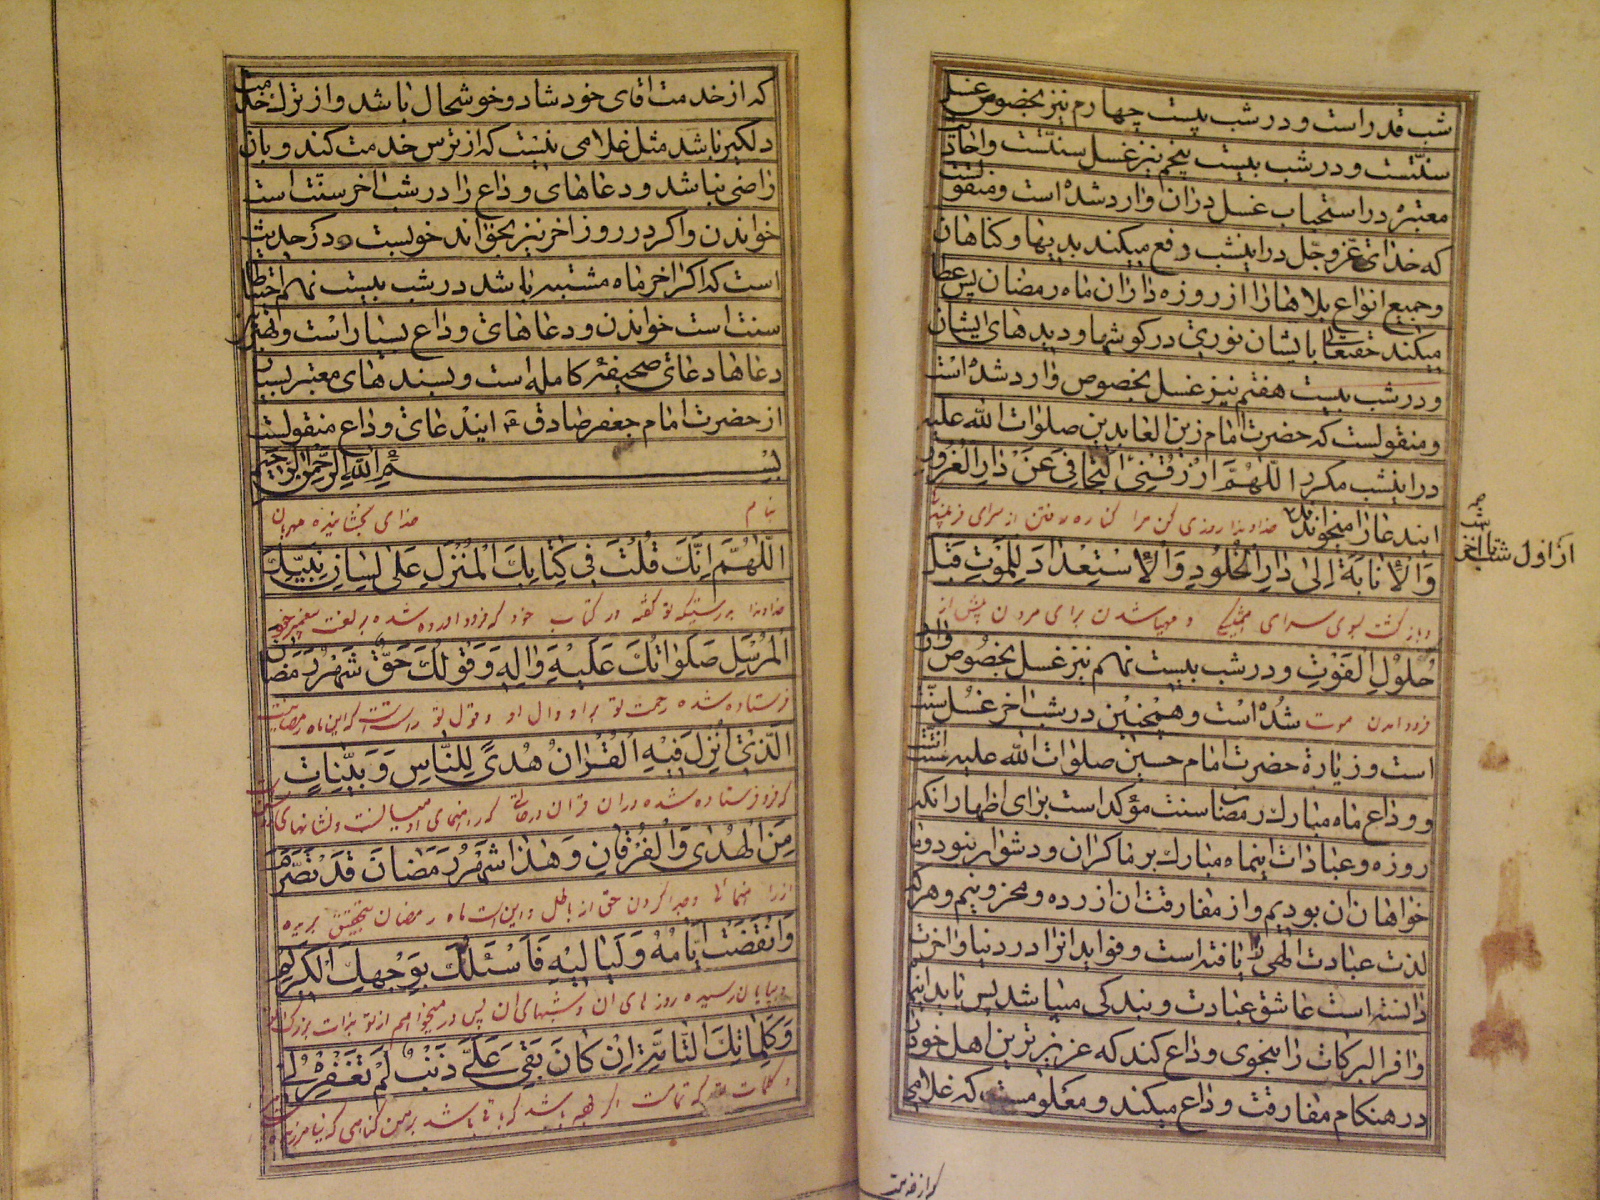 شب قدر است و در شب بیست چهارم نیز بخصوص غسل
سنّتست و در شب بیست پنجم نیز غسل سنّتست و احادیث
معتبره در استحباب غسل دران وارد شده است و منقولست
که خدای عزّ و جّل در اینشب رفع میکند بدیها و کناهان
و جمیع انواع بلاها را از روزه داران ماه رمضان پس عطا
میکند حقتعالی بایشان نوری در کوشها و دیدهای ایشان
و در شب بیست هفتم نیز غسل بخصوص وارد شده است
و منقولست که حضرت امام زین العابدین صلوات الله علیه
در اینشب مکرر اللّهُمَّ ارْزُقْنِی التَّجافِیَ عَنْ دارِ الْغُرُورِ
ایندعا را میخواندند خداوندا روزی کن مرا کناره رفتن از سرای فریبنده
از اول شب تا آخر شب
وَالْاِنابَةَ اِلی دارِ الْخُلُودِ وَالْاِسْتِعْدادَ لِلْمَوْتِ قَبْلَ
و بازکشت بسوی سرای همیشکی و مهیا شدن برای مردن پیش از
حُلُولِ الْفَوْتِ و در شب بیست نهم نیز غسل بخصوص وارد
فرود امدن موت شده است و همچنین در شب اخر غسل سنّت
است و زیارة حضرت امام حسین صلوات الله علیه سنّتست
و وداع ماه مبارک رمضان سنت مؤکد است برای اظهار انکه
روزه و عبادات اینماه مبارک بر ما کران و دشوار نبود و ما
خواهان ان بودیم و از مفارقت ان ازرده و محزونیم و هرکه
لذت عبادت الهی را یافته است و فواید انرا در دنیا و اخرت
دانسته است عاشق عبادت و بندکی میباشد پس باید اینماه
وافر البرکات را بنحوی وداع کند که عزیزترین اهل خود را
در هنکام مفارقت وداع میکند و معلومست که غلامی
که از خدمت
که از خدمت اقای خود شاد و خوشحال باشد و از ترک خدمت
دلکیر باشد مثل غلامی نیست که از ترس خدمت کند و بان
راضی نباشد و دعاهای وداع را در شب اخر سنّت است
خواندن و اکر در روز اخر نیز بخواند خوبست و در حدیث
است که اکر اخر ماه مشتبه باشد در شب بیست نهم احتیاطا
سنت است خواندن و دعاهای وداع بسیار است و بهترین
دعاها دعای صحیفهٔ کامله است و بسندهای معتبر بسیار
از حضرت امام جعفر صادق ع ایندعای وداع منقولست
بِسْمِ اللّهِ الرَّحْمنِ الرَّحیمِ
بنام خدای بخشاینده مهربان
اَللّهُمَّ اِنَّکَ قُلْتَ فی کِتابِکَ الْمُنْزَلِ عَلی لِسانِ نَبِیِّکَ
خداوندا بدرستیکه تو کفتهٔ در کتاب خود که فرود اورده شده بر لغت پیغمبر خود
الْمُرْسَلِ صَلَواتُکَ عَلَیْهِ وَالِهِ وَقَوْلُکَ حَقٌّ شَهْرُ رَمَضانَ
فرستاده شده رحمت تو بر او و ال او و قول تو راست است که این ماه رمضانست
الَّذی اُنْزِلَ فیهِ الْقُرْانُ هُدیً لِلنّاسِ وَبَیِّناتٍ
که فرو فرستاده شده در ان قران در حالتی که راهنمای ادمیانست و نشانهای
مِنَ الْهُدی وَالْفُرْقانِ وَهذا شَهْرُ رَمَضانَ قَدْ تَصَرَّمَ
از راهنمائی و جدا کردن حق از باطل و این است ماه رمضان بتحقیق بریده
وَانْقَضَتْ اَیّامُهُ وَلَیالیهِ فَاَسْئَلُکَ بِوَجْهِکَ الْکَریمِ
و بپایان رسیده روزهای ان و شبهای ان پس در میخواهم از تو بذات بزرک تو
وَکَلِماتِکَ التّامَّةِ اِنْ کانَ بَقِیَ عَلَیَّ ذَنْبٌ لَمْ تَغْفِرْهُ لی
و کلمات تو که تمامست اکر بوده باشد که باقی باشد بر من کناهی که نیامرزیده